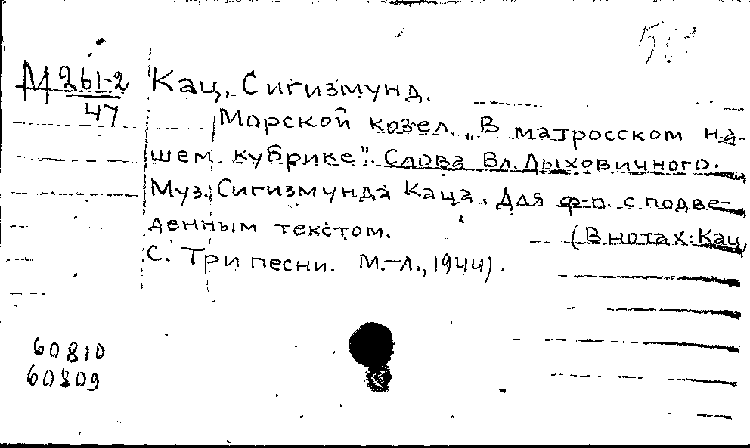 М 261-2
47
Кац, Сигизмунд.
Морской козел. „В матросском на-
шем кубрике". Слова Вл. Дыховичного.
Муз. Сигизмунда Каца. Для ф-п. с подве-
денным текстом. (В нотах: Кац,
С. Три песни. М.-Л., 1944).
60810
60809